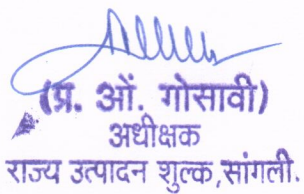 (प्र. ओं. गोसावी)
अधीक्षक
राज्य उत्पादन शुल्क,सांगली.